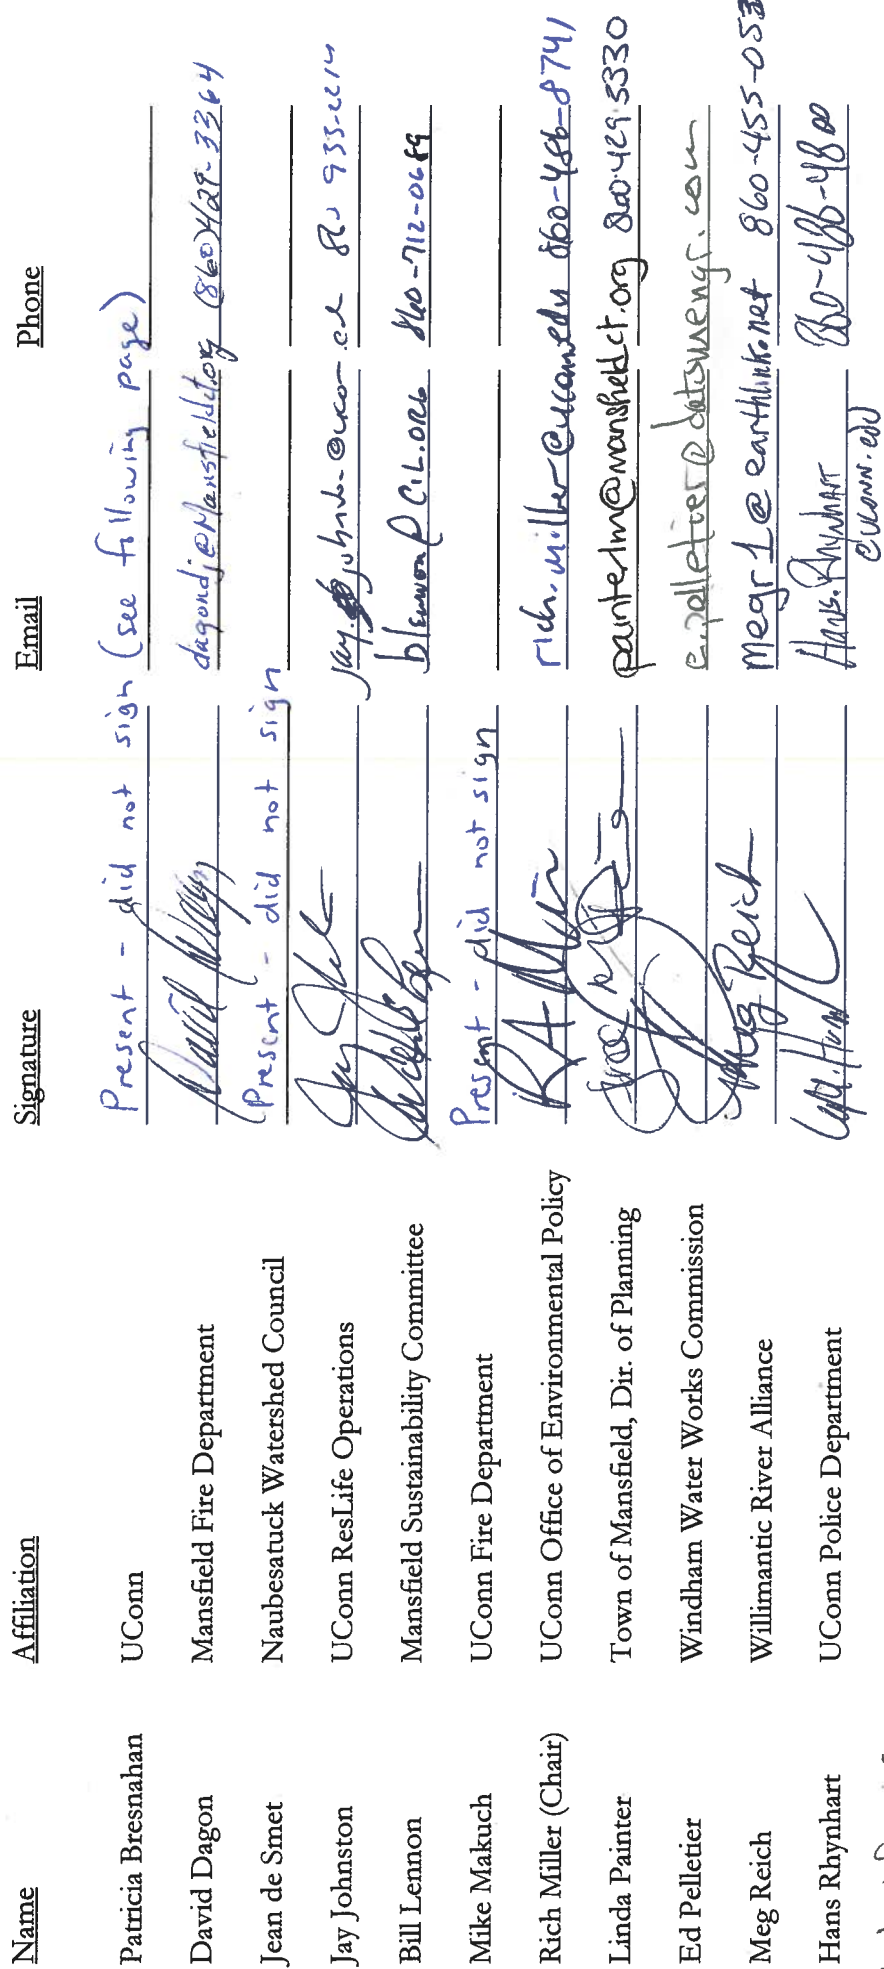 Name Affiliation Signature Email Phone
Patricia Bresnahan UConn Present - did not sign (see following page)
David Dagon Mansfield Fire Department dagondj@Mansfieldct.org (860)429-3364
Jean de Smet Naubesatuck Watershed Council Present - did not sign
Jay Johnston UConn ResLife Operations
Bill Lennon Mansfield Sustainability Committee 860-712-0689
Mike Makuch UConn Fire Department Present - did not sign
Rich Miller (Chair) UConn Office of Environmental Policy rich.miller@uconn.edu 860-486-8741
Linda Painter Town of Mansfield, Dir. of Planning painterlm@mansfieldct.org 860.429.3330
Ed Pelletier Windham Water Works Commission e.pelletier@datumengr.com
Meg Reich Willimantic River Alliance Meg Reich megr1@earthlink.net 860-455-053
Hans Rhynhart UConn Police Department Hans.Rhynhart 860-486-4800
@uconn.edu